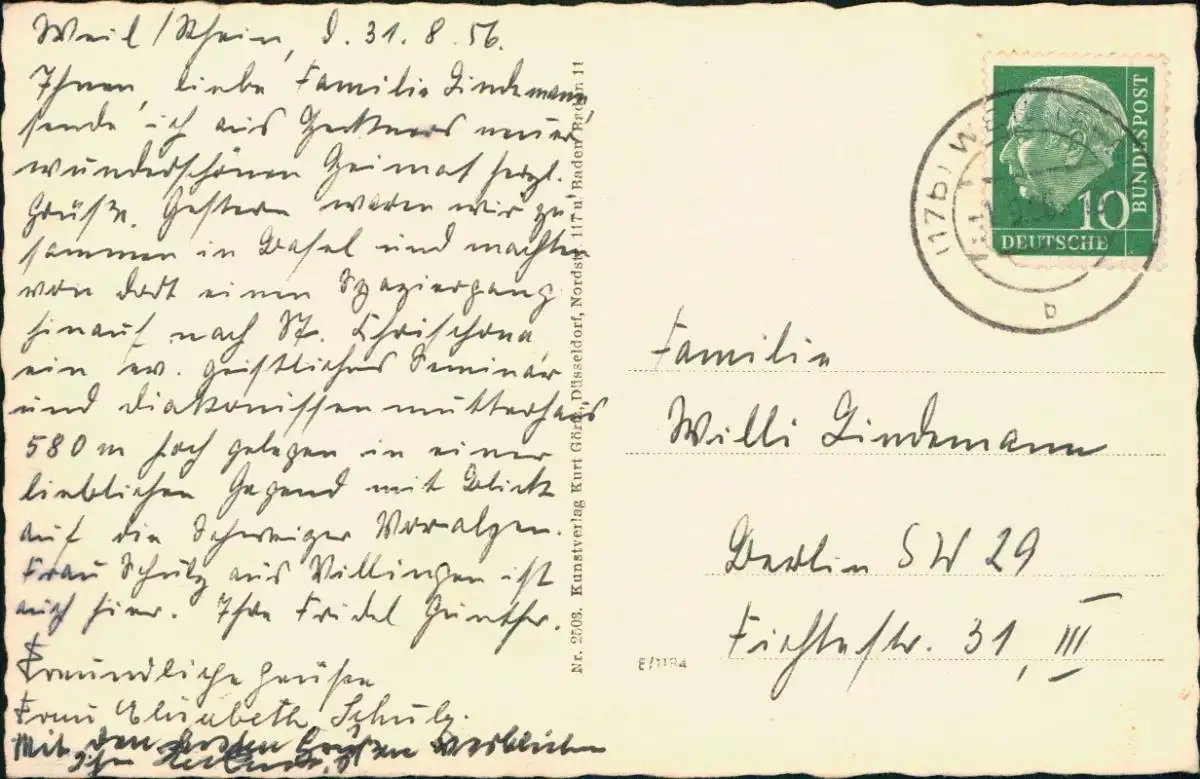 Weil/Rhein, d. 31. 8. 56.
Ihnen, liebe Familie Lindemann,
sende ich aus neuer,
wunderschönen Heimat herzl.
Grüße. Gestern waren wir zu
sammen in Basel und machten
von dort einen Spaziergang
hinauf nach St. Chrischona,
ein ev. geistliches Seminar
und Diakonissenmutterhaus
580 m hoch gelegen in einer
lieblichen Gegend mit Blick
auf die Schweizer Voralpen.
Frau Schulz aus Villingen ist
auch hier. Ihre Fridel Günther.
Freundliche Grüße
Frau Elisabeth Schulz.
Mit den besten Grüßen verbleiben
Ihre
Nr. 2503. Kunstverlag Kurt Görtz, Düsseldorf, Nordstr. 117 u. Baden-Baden 11
E/1184
(17b) WEIL
b
10
DEUTSCHE
BUNDESPOST
Familie
Willi Lindemann
Berlin SW 29
Fichtestr. 31, III